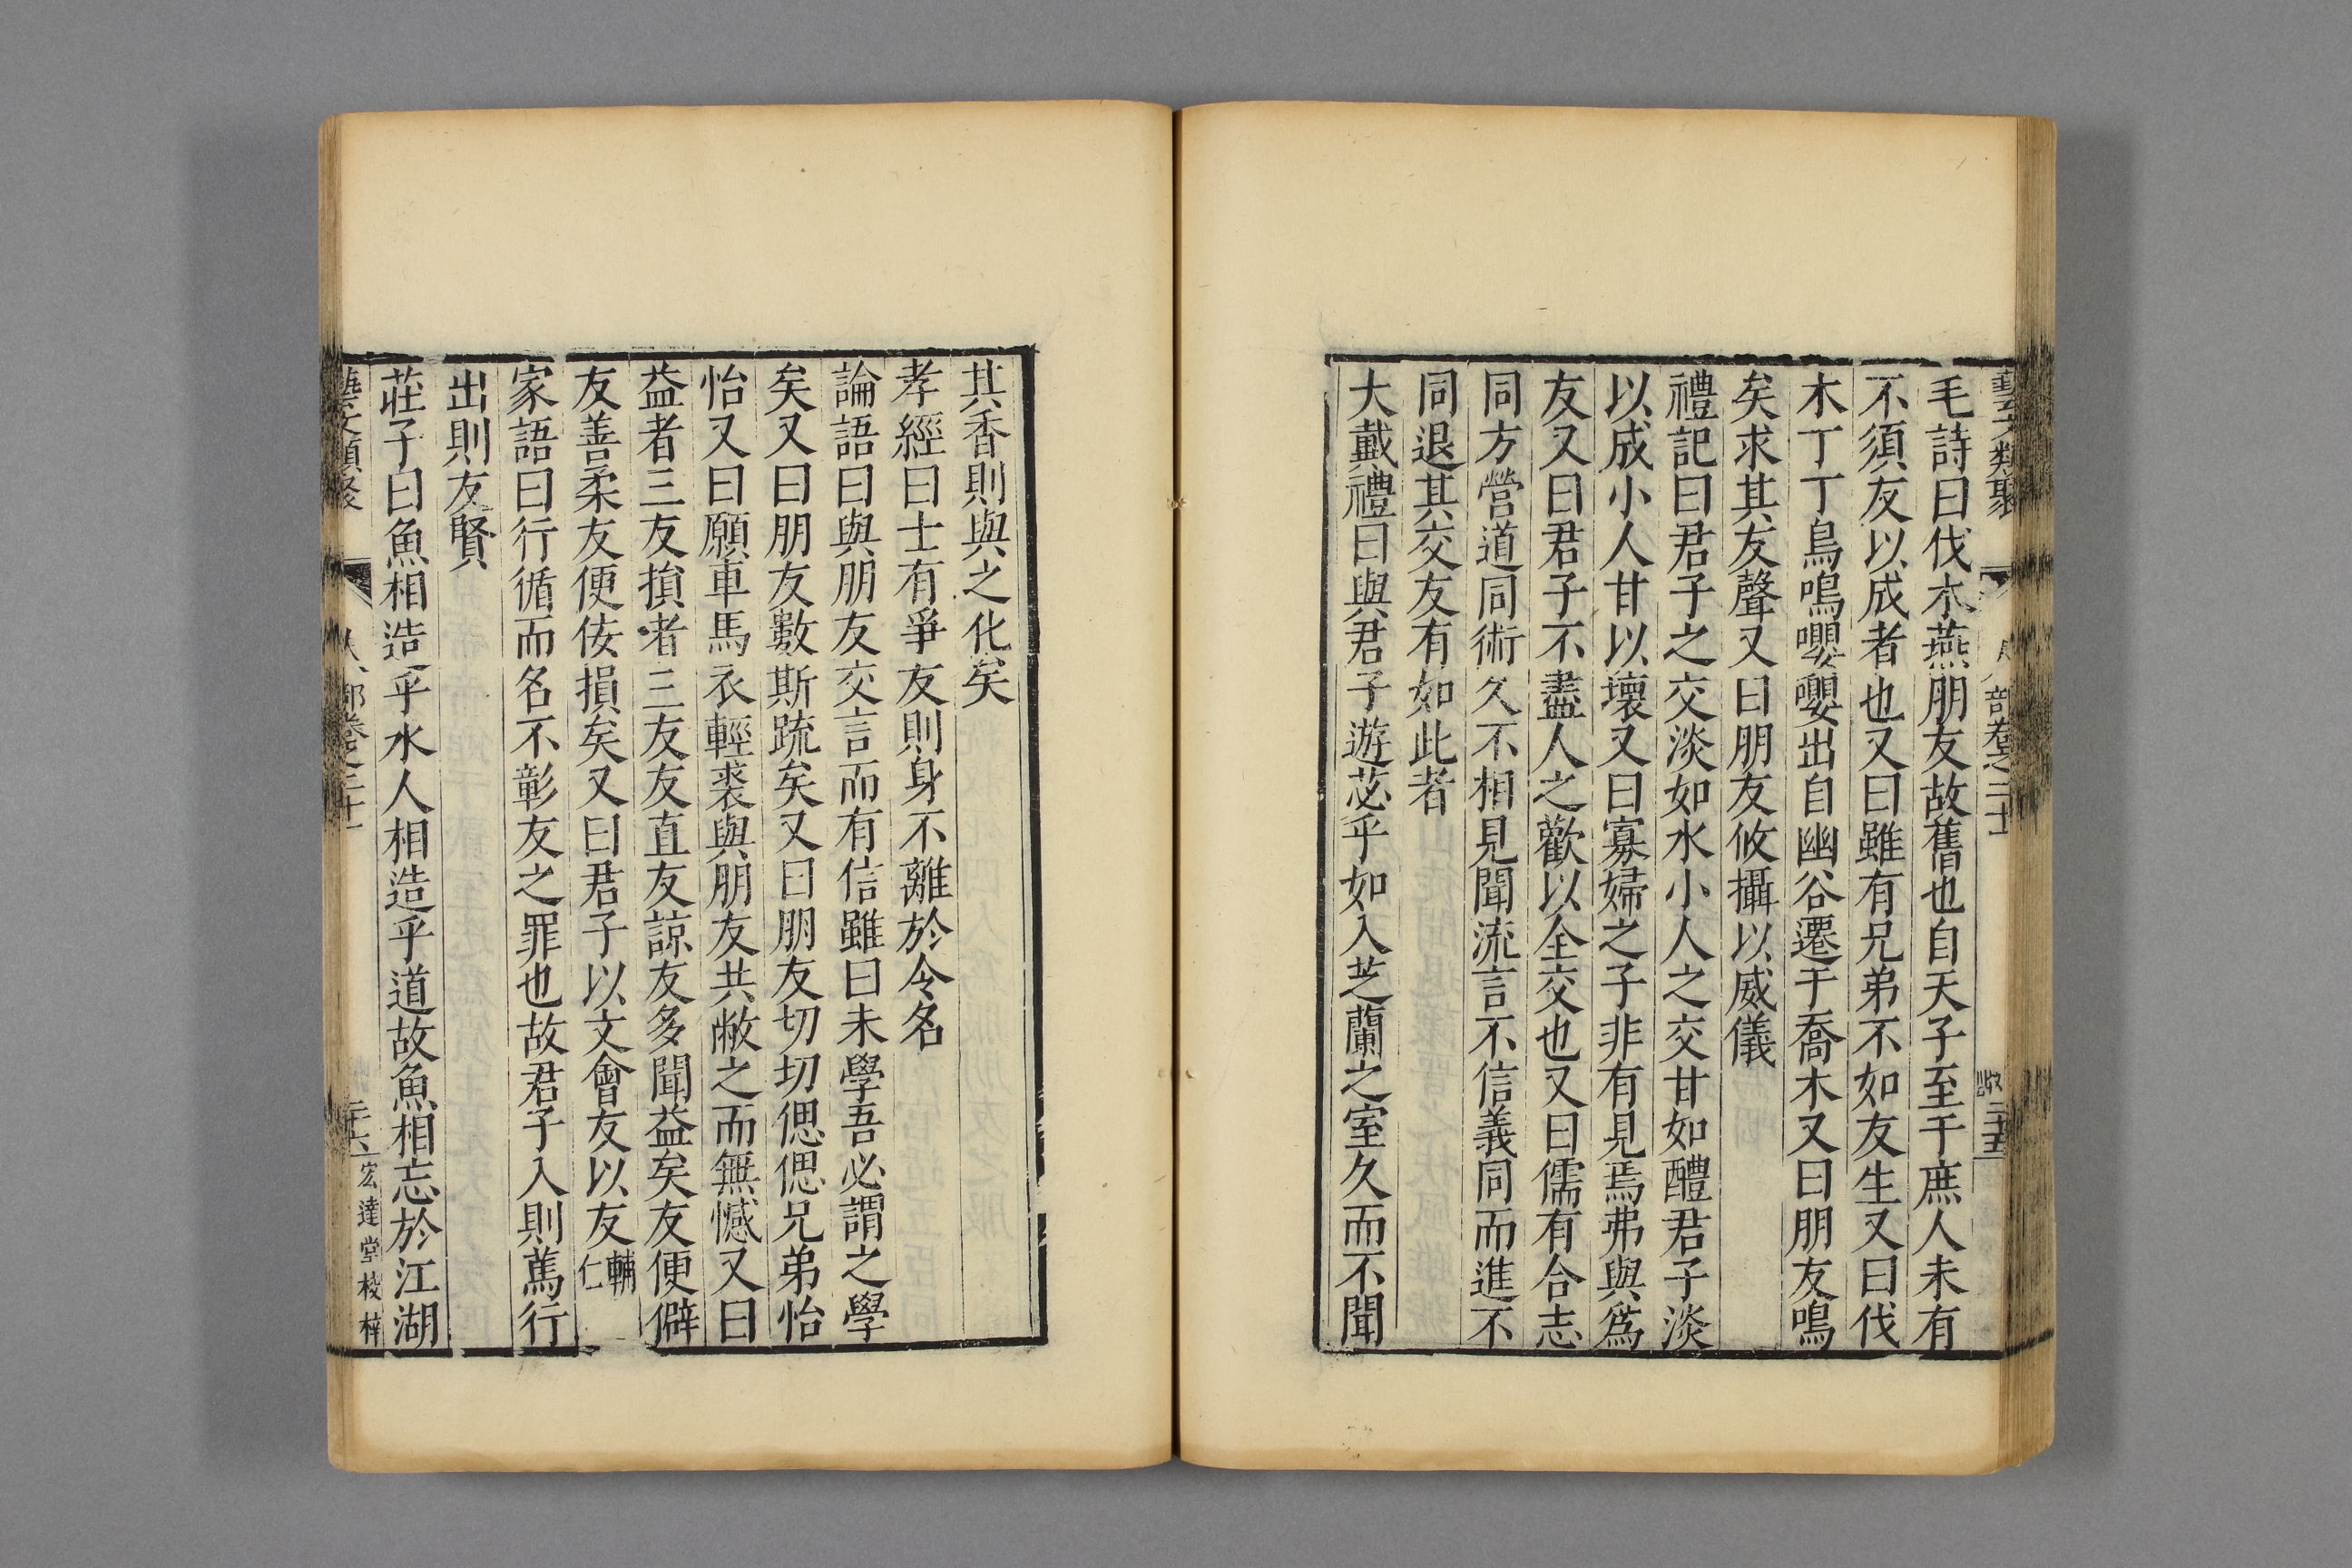 藝文類聚 人部卷之二十一 二十五
毛詩曰伐木燕朋友故舊也自天子至于庶人未有
不須友以成者也又曰雖有兄弟不如友生又曰伐
木丁丁鳥鳴嚶嚶出自幽谷遷于喬木又曰朋友鳴
矣求其友聲又曰朋友攸攝以威儀
禮記曰君子之交淡如水小人之交甘如醴君子淡
以成小人甘以壞又曰寡婦之子非有見焉弗與爲
友又曰君子不盡人之歡以全交也又曰儒有合志
同方營道同術久不相見聞流言不信義同而進不
同退其交友有如此者
大戴禮曰與君子遊苾乎如入芝蘭之室久而不聞
其香則與之化矣
孝經曰士有爭友則身不離於令名
論語曰與朋友交言而有信雖曰未學吾必謂之學
矣又曰朋友數斯䟽矣又曰朋友切切偲偲兄弟怡
怡又曰願車馬衣輕裘與朋友共敝之而無憾又曰
益者三友損者三友友直友諒友多聞益矣友便僻
友善柔友便佞損矣又曰君子以文會友以友輔仁
家語曰行循而名不彰友之罪也故君子入則篤行
出則友賢
莊子曰魚相造乎水人相造乎道故魚相忘於江湖
藝文類聚 人部卷之二十一 二十六 宏達堂校梓